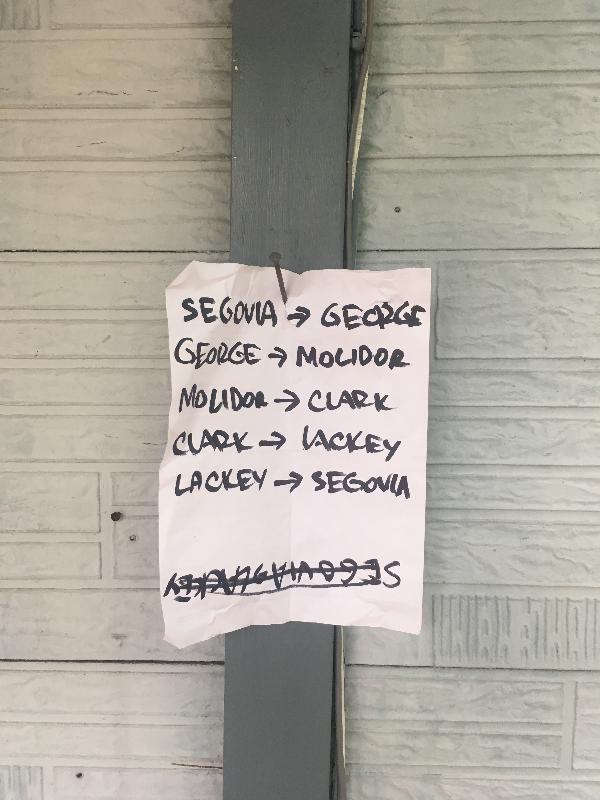 SEGOVIA → GEORGE
GEORGE → MOLIDOR
MOLIDOR → CLARK
CLARK → LACKEY
LACKEY → SEGOVIA